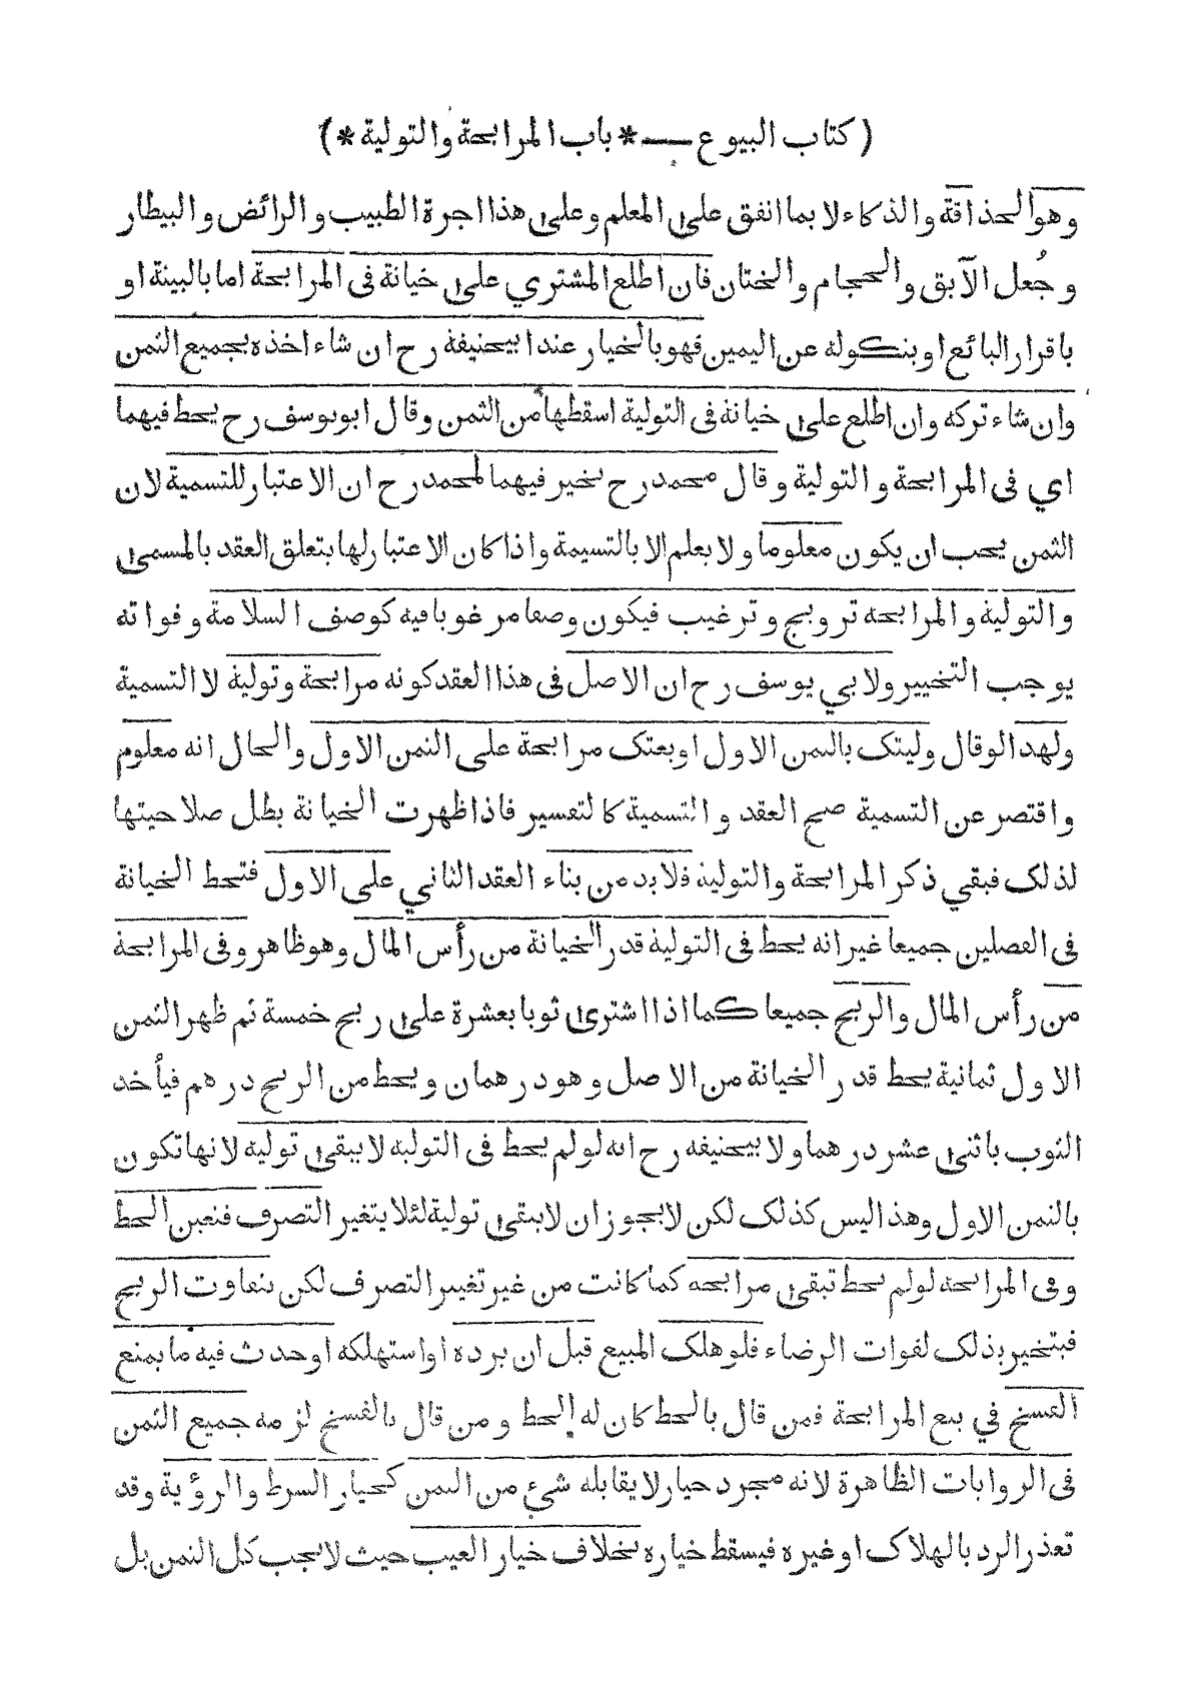 ( كتاب البيوع — * باب المرابحة والتولية * )
وهو الحذاقة والذكاء لا بما انفق على المعلم وعلى هذا اجرة الطبيب والرائض والبيطار
وجُعل الآبق والحجام والختان فان اطلع المشتري على خيانة فى المرابحة اما بالبينة او
باقرار البائع او بنكوله عن اليمين فهو بالخيار عند ابيحنيفة رح ان شاء اخذه بجميع الثمن
وان شاء تركه وان اطلع على خيانة فى التولية اسقطها من الثمن وقال ابو يوسف رح يحط فيهما
اي فى المرابحة والتولية وقال محمد رح يخير فيهما لمحمد رح ان الاعتبار للتسمية لان
الثمن يجب ان يكون معلوما ولا يعلم الا بالتسيمة واذا كان الاعتبار لها يتعلق العقد بالمسمى
والتولية والمرابحة ترويج وترغيب فيكون وصفا مرغوبا فيه كوصف السلامة وفواته
يوجب التخيير ولابي يوسف رح ان الاصل فى هذا العقد كونه مرابحة وتولية لا التسمية
ولهذا لو قال وليتك بالثمن الاول او بعتك مرابحة على الثمن الاول والحال انه معلوم
واقتصر عن التسمية صح العقد والتسمية كالتفسير فاذا ظهرت الخيانة بطل صلاحيتها
لذلك فبقي ذكر المرابحة والتولية فلا بد من بناء العقد الثاني على الاول فتحط الخيانة
فى الفصلين جميعا غير انه يحط فى التولية قدر الخيانة من رأس المال وهو ظاهر وفى المرابحة
من رأس المال والربح جميعا كما اذا اشترى ثوبا بعشرة على ربح خمسة ثم ظهر الثمن
الاول ثمانية يحط قدر الخيانة من الاصل وهو درهمان ويحط من الربح درهم فيأخذ
الثوب باثنى عشر درهما ولابيحنيفه رح انه لو لم يحط فى التولية لا يبقى تولية لانها تكون
بالثمن الاول وهذا ليس كذلك لكن لا يجوز ان لا يبقى تولية لئلا يتغير التصرف فتعين الحط
وفى المرابحة لو لم يحط تبقى مرابحه كما كانت من غير تغيير التصرف لكن يتفاوت الربح
فيتخير بذلك لفوات الرضاء فلو هلك المبيع قبل ان يرده او استهلكه او حدث فيه ما يمنع
الفسخ في بيع المرابحة فمن قال بالحط كان له الحط ومن قال بالفسخ لزمه جميع الثمن
فى الروايات الظاهرة لانه مجرد خيار لا يقابله شئ من الثمن كخيار الشرط والرؤية وقد
تعذر الرد بالهلاك او غيره فيسقط خياره بخلاف خيار العيب حيث لا يجب كل الثمن بل